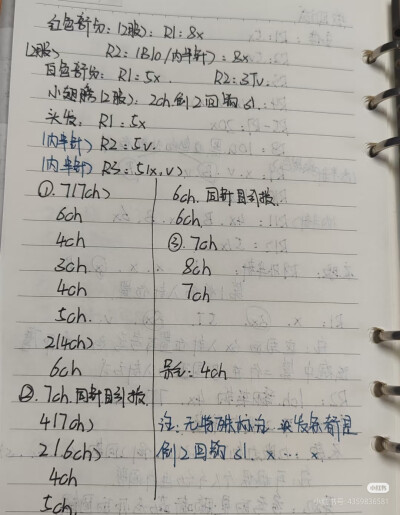 红色部分:(2股): R1: 8x
(2股) R2: (BLO/内半针): 8x
白色部分: R1: 5x R2: 3Tv
小翅膀(2股): 2ch.倒2回钩 sl.
头发: R1: 5x
(内半针) R2: 5v.
(内半针) R3: 5(x,v)
①. 7(7ch)
6ch
4ch
3ch
4ch
5ch.
2(4ch)
6ch
②. 7ch.同针目引拔
4(7ch)
2(6ch)
4ch
5ch.
6ch. 同针目引拔.
6ch.
③. 7ch
8ch
7ch
4ch
注: 无特殊标注 头发条都是
倒2回钩 sl. x ... x
小红书